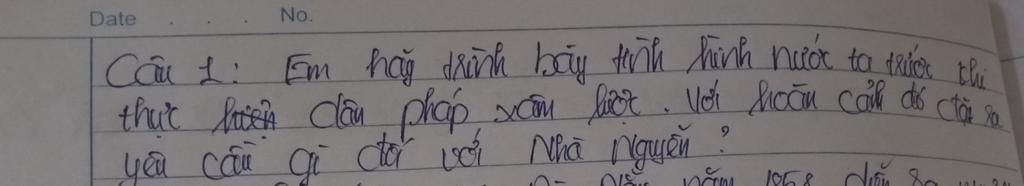 Date . . . No.
Câu 1: Em hãy trình bày tình hình nước ta trước khi
thực dân pháp xâm lược. Với hoàn cảnh đó đặt ra
yêu cầu gì đối với Nhà Nguyễn?
năm 1858 diễn ra